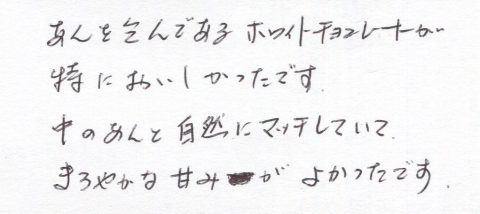 あんを包んであるホワイトチョコレートが
特においしかったです.
中のあんと自然にマッチしていて.
まろやかな甘みがよかったです.